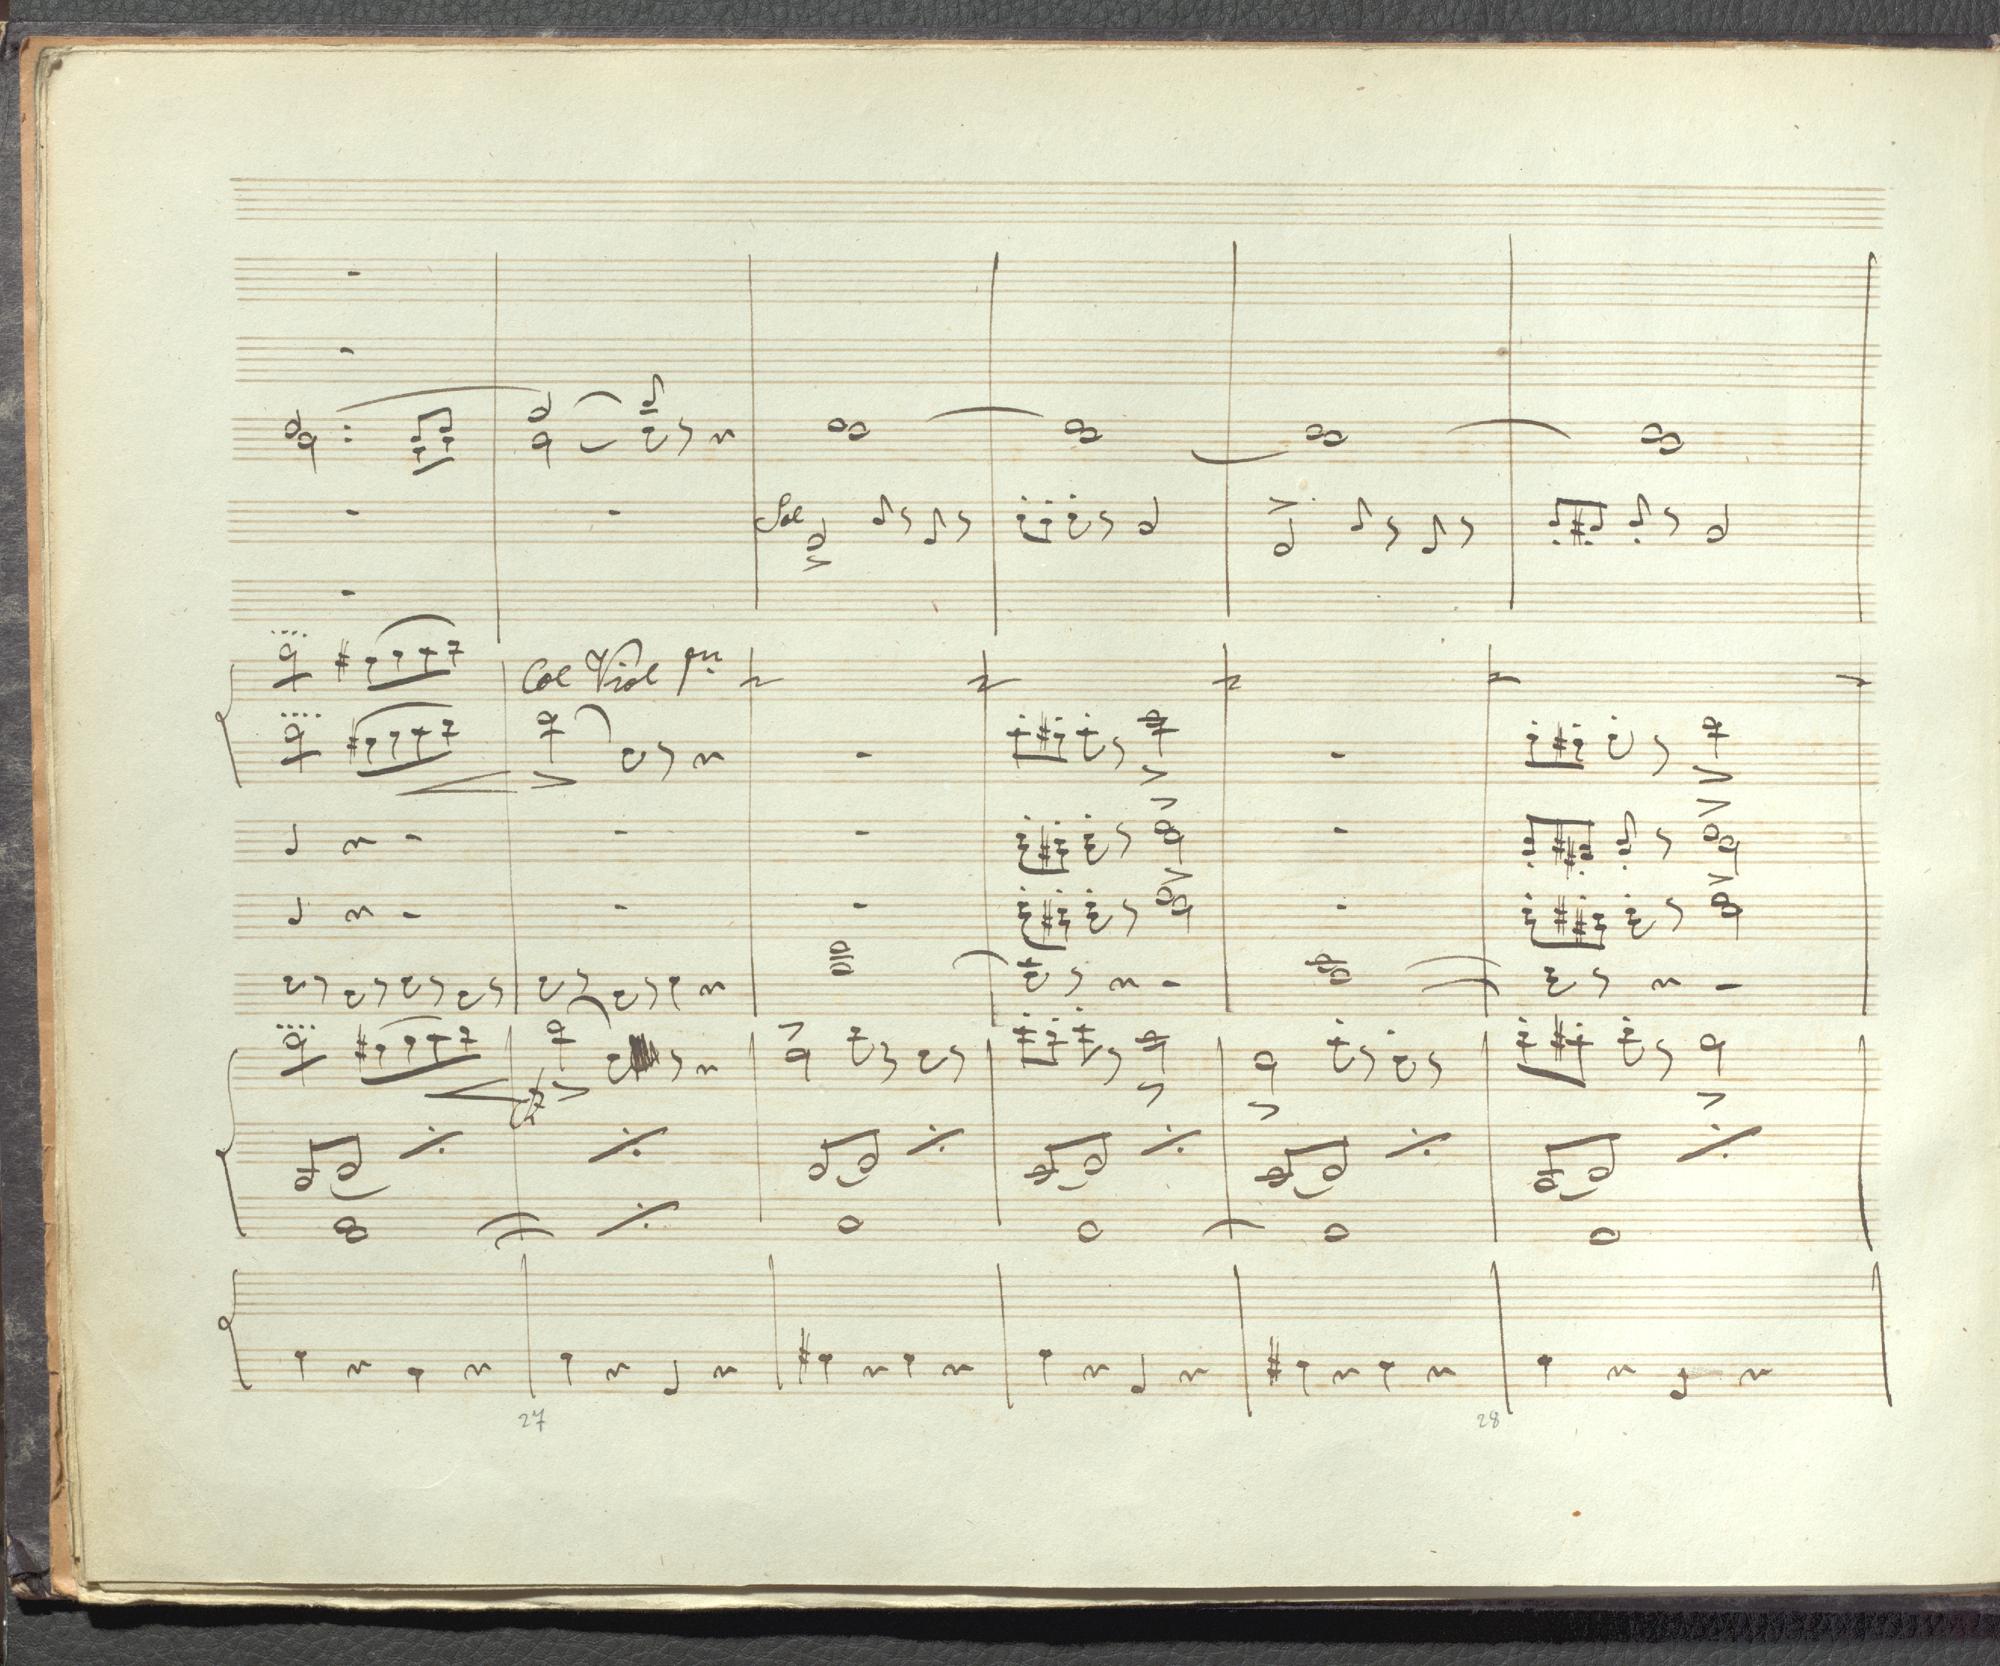 Sol
Col Viol pmo
27 28